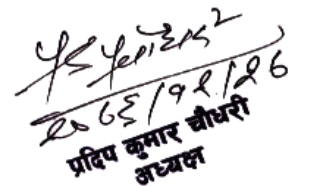 २०८६/१२/२६
प्रदिप कुमार चौधरी
अध्यक्ष